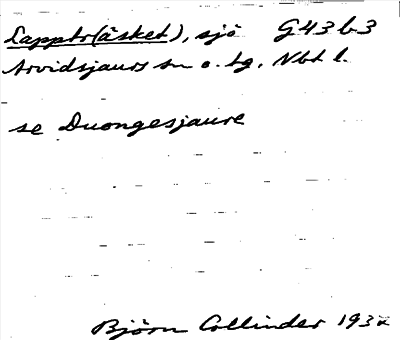 Lapptr(äsket), sjö G43b3
Arvidsjaurs sn o. tg, Nbt l.
se Duongesjaure
Björn Collinder